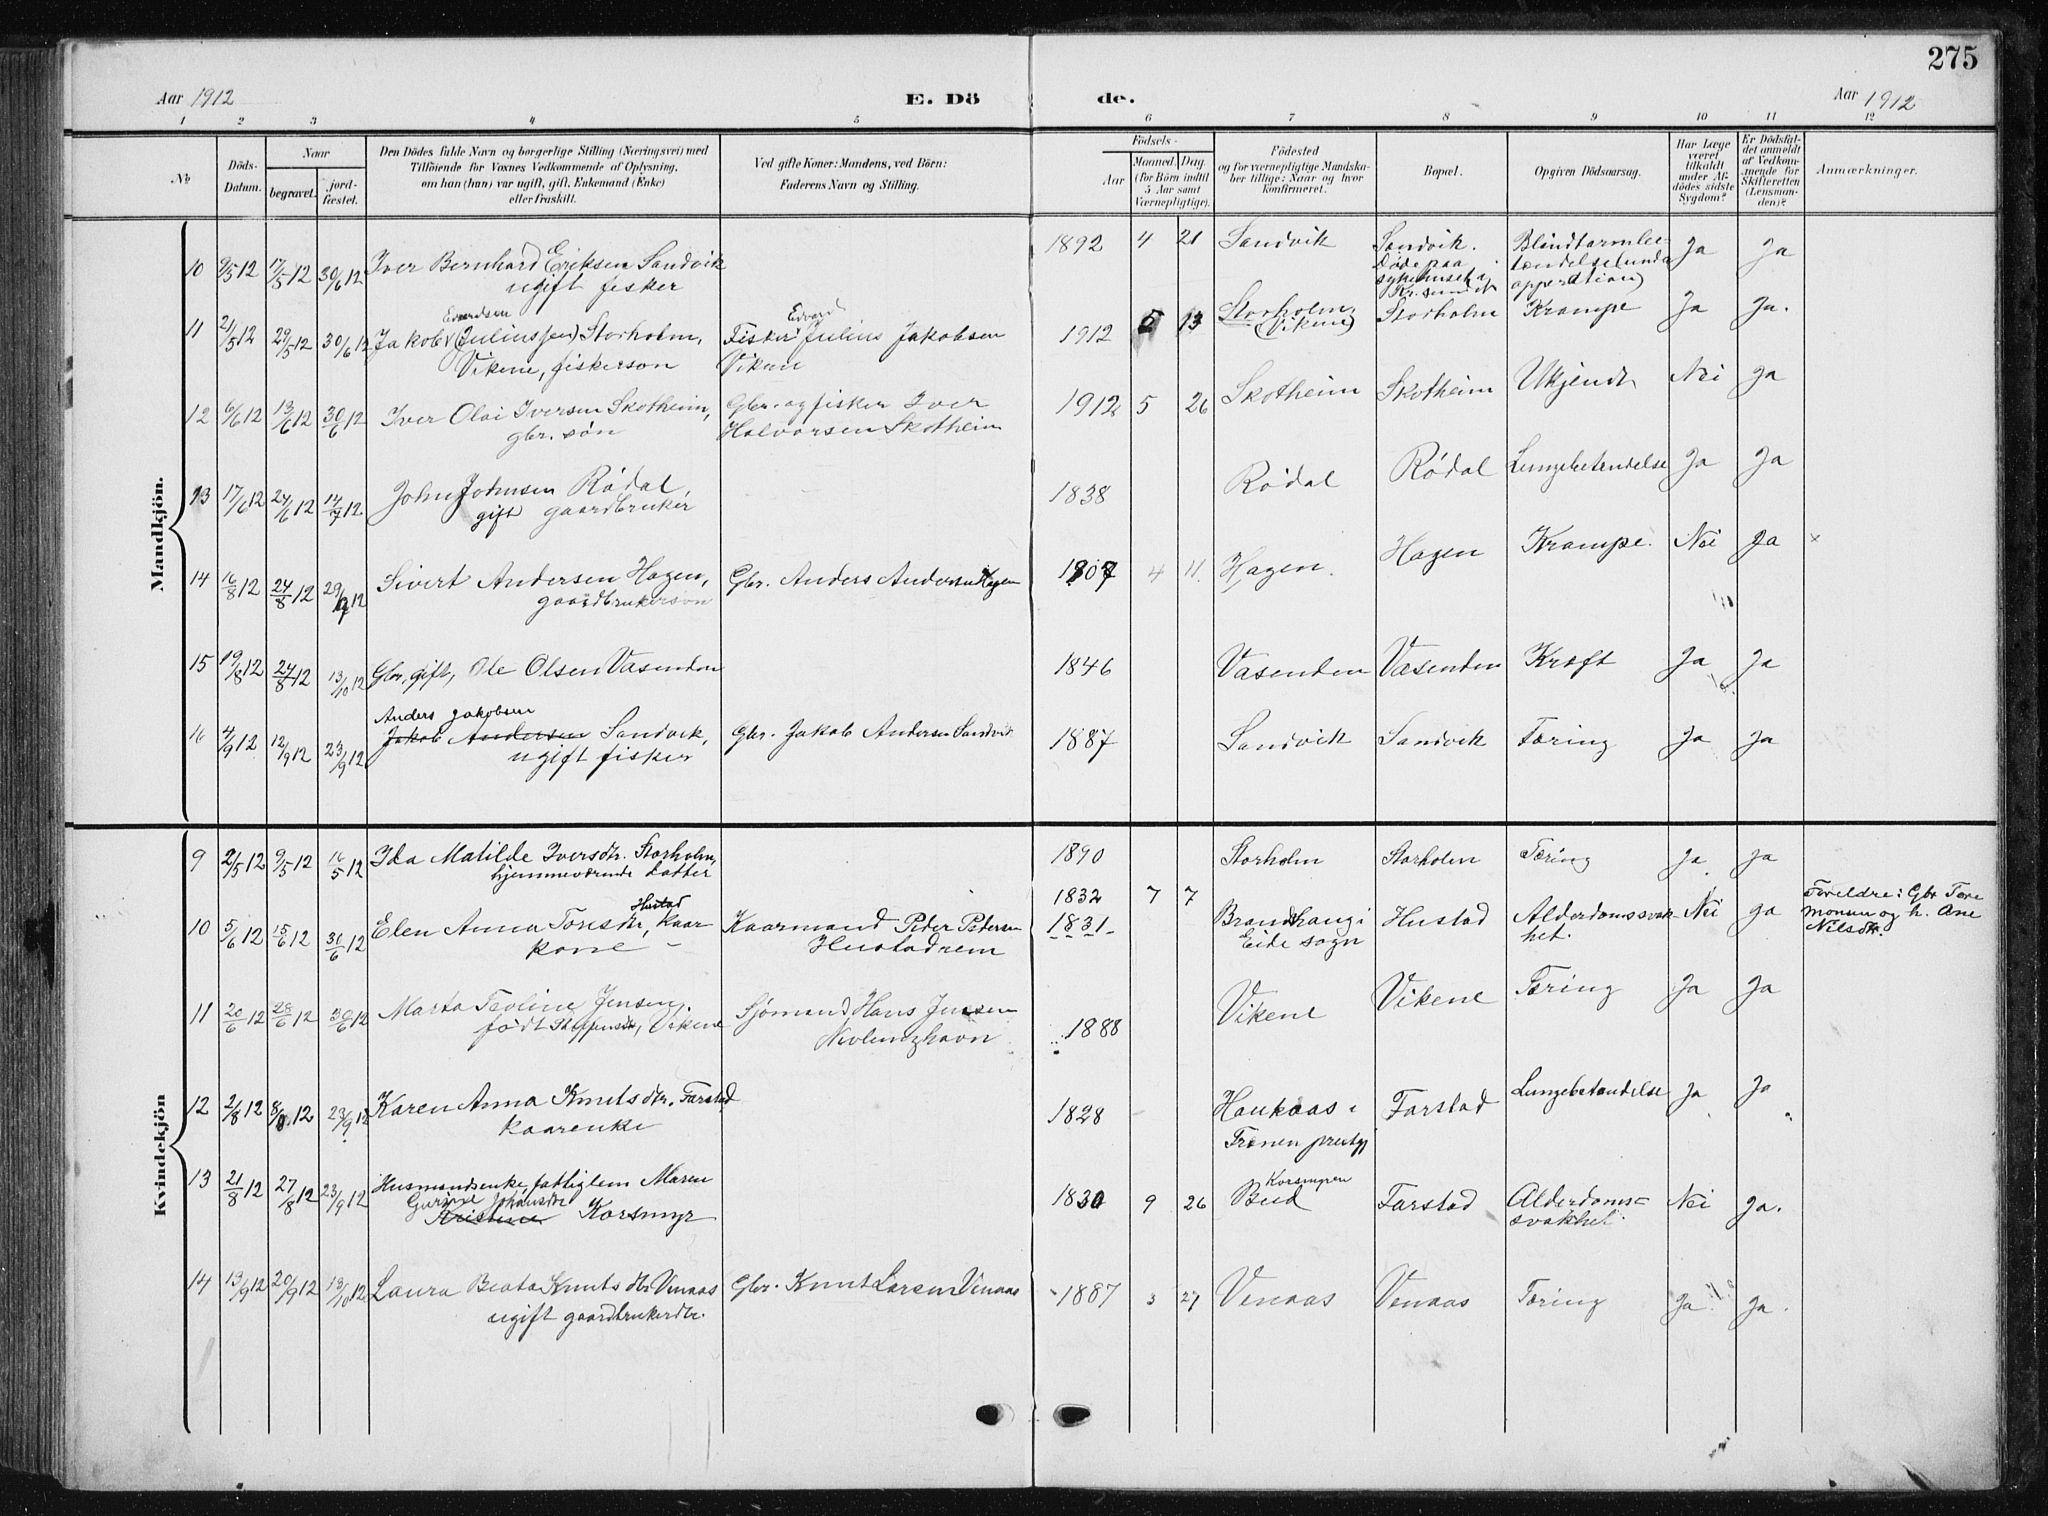 275
Aar 1912
E. Dö
de.
Aar 1912
1 2 3 4 5 6 7 8 9 10 11 12
No
Döds-Datum.
Naar
begravet.
jord-fæstet.
Den Dödes fulde Navn og borgerlige Stilling (Næringsvei) med
Tilföiende for Voxnes Vedkommende af Oplysning,
om han (hun) var ugift, gift, Enkemand (Enke)
eller fraskilt.
Ved gifte Koner: Mandens, ved Börn:
Faderens Navn og Stilling.
Födsels-
Aar
Maaned. Dag.
(for Börn indtil
5 Aar samt
Værnepligtige).
Födested
og for værnepligtige Mandska-
ber tillige: Naar og hvor
konfirmeret.
Bopæl.
Opgiven Dödsaarsag.
Har Læge
været
tilkaldt
under Af-
dödes sidste
Sygdom?
Er Dödsfal-
det anmeldt
af Vedkom-
mende for
Skifteretten
(Lensman-
den)?
Anmærkninger.
Mandkjön.
10 9/5 12 17/5 12 30/6 12 Iver Bernhard Eriksen Sandvik
ugift fisker
1892 4 21 Sandvik
Sandvik.
Død paa
sykehuset i
Kr.sund
Blindtarmbe-
tændelse (under
opperation)
Ja Ja
11 21/5 12 29/5 12 30/6 12 Jakob Edvardsen (Juliussen) Storholm,
Vikene, fiskerson
Fisker Edvard Julius Jakobsen
Vikan
1912 5 13 Storholm,
(Vikene)
Storholm Krampe Ja Ja.
12 6/6 12 13/6 12 30/6 12 Iver Olai Iversen Skotheim,
gbr. søn
Gbr. og fisker Iver
Halvorsen Skotheim
1912 5 26 Skotheim Skotheim Ukjendt Nei Ja
13 17/6 12 24/6 12 14/7 12 John Johnsen Rødal,
gift gaardbruker
1838 Rødal Rødal Lungebetændelse Ja Ja
14 16/8 12 24/8 12 29/9 12 Sivert Andersen Hagen,
gaardbrukerson
Gbr. Anders Andersen Hagen
1907 4 11. Hagen. Hagen Krampe. Nei Ja ×
15 19/8 12 24/8 12 13/10 12 Gbr, gift, Ole Olsen Vasenden
1846 Vasenden Vasenden Kræft Ja Ja
16 4/9 12 12/9 12 23/9 12 Anders Jakobsen
Jakob Andersen Sandvik,
ugift fisker
Gbr. Jakob Andersen Sandvik
1887 Sandvik Sandvik Tæring Ja Ja
Kvindekjön
9 2/5 12 9/5 12 16/5 12 Ida Matilde Iversdtr. Storholm,
hjemmeværende datter
1890 Storholm Storholm Tæring Ja Ja
10 5/6 12 15/6 12 30/6 12 Elen Anna Toresdtr, Hustad kaar
kone
Kaarmand Peder Pedersen
Hustadrem
1832 7 7
1831
Brandhaug i
Eide sogn
Hustad Alderdomssvak-
het.
Nei Ja
Foreldre: Gbr Tore
Monsen og h. Ane
Nilsdtr.
11 20/6 12 28/6 12 30/6 12 Marta Teoline Jensen,
født Steffensdtr, Vikene
Sjømand Hans Jensen
Nevlunghavn
1888 Vikene Vikene Tæring Ja Ja
12 2/8 12 8/8 12 23/9 12 Karen Anna Knutsdtr. Farstad
kaarenke
1828 Haukaas i
Frænen prestgj
Farstad Lungebetændelse Ja Ja
13 21/8 12 27/8 12 23/9 12 Husmandsenke, fattiglem Maren
Gurine Johansdtr
Kristine Korsmyr
1830 9 26 Korsmyren
Bud
Farstad Alderdoms-
svakhet.
Nei Ja.
14 13/9 12 20/9 12 13/10 12 Laura Beata Knutsdtr Venaas
ugift gaardbrukerdtr.
Gbr. Knut Larsen Venaas
1887 3 27 Venaas Venaas Tæring Ja Ja.